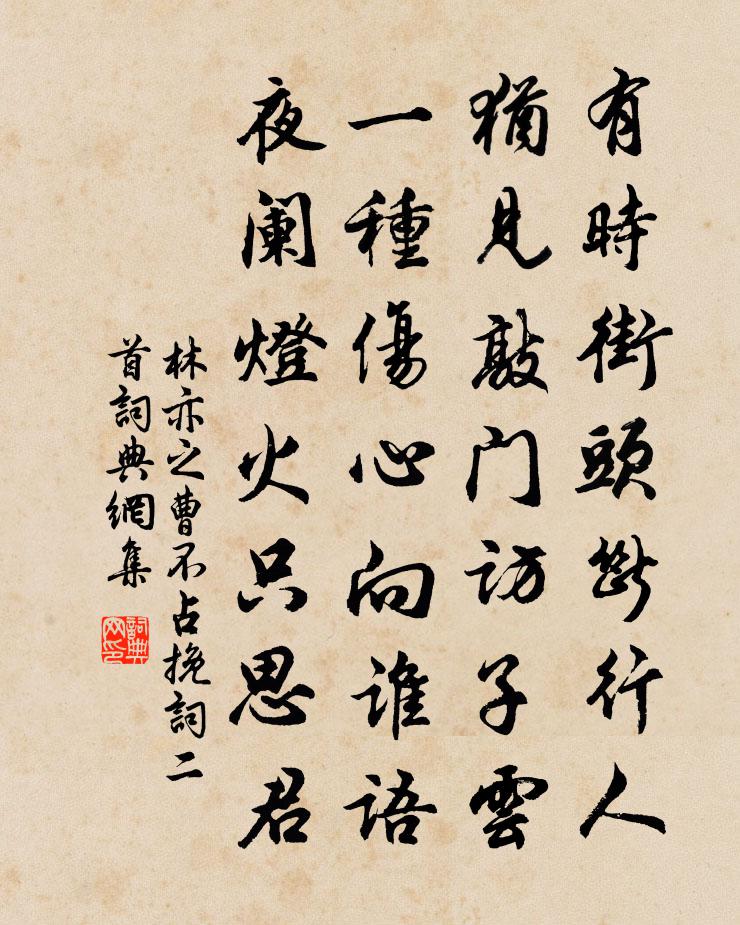 有時街頭斷行人
猶見敲门訪子雲
一種傷心向誰語
夜阑燈火只思君
林亦之曹不占挽詞二
首詞典網集
詞典网印